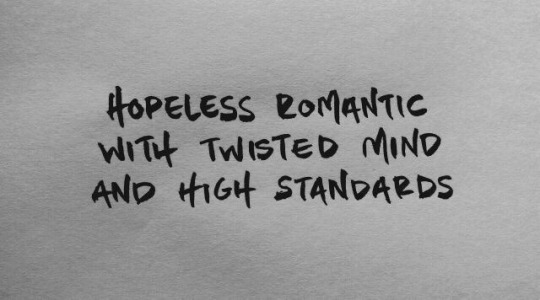 HOPELESS ROMANTIC
WITH TWISTED MIND
AND HIGH STANDARDS